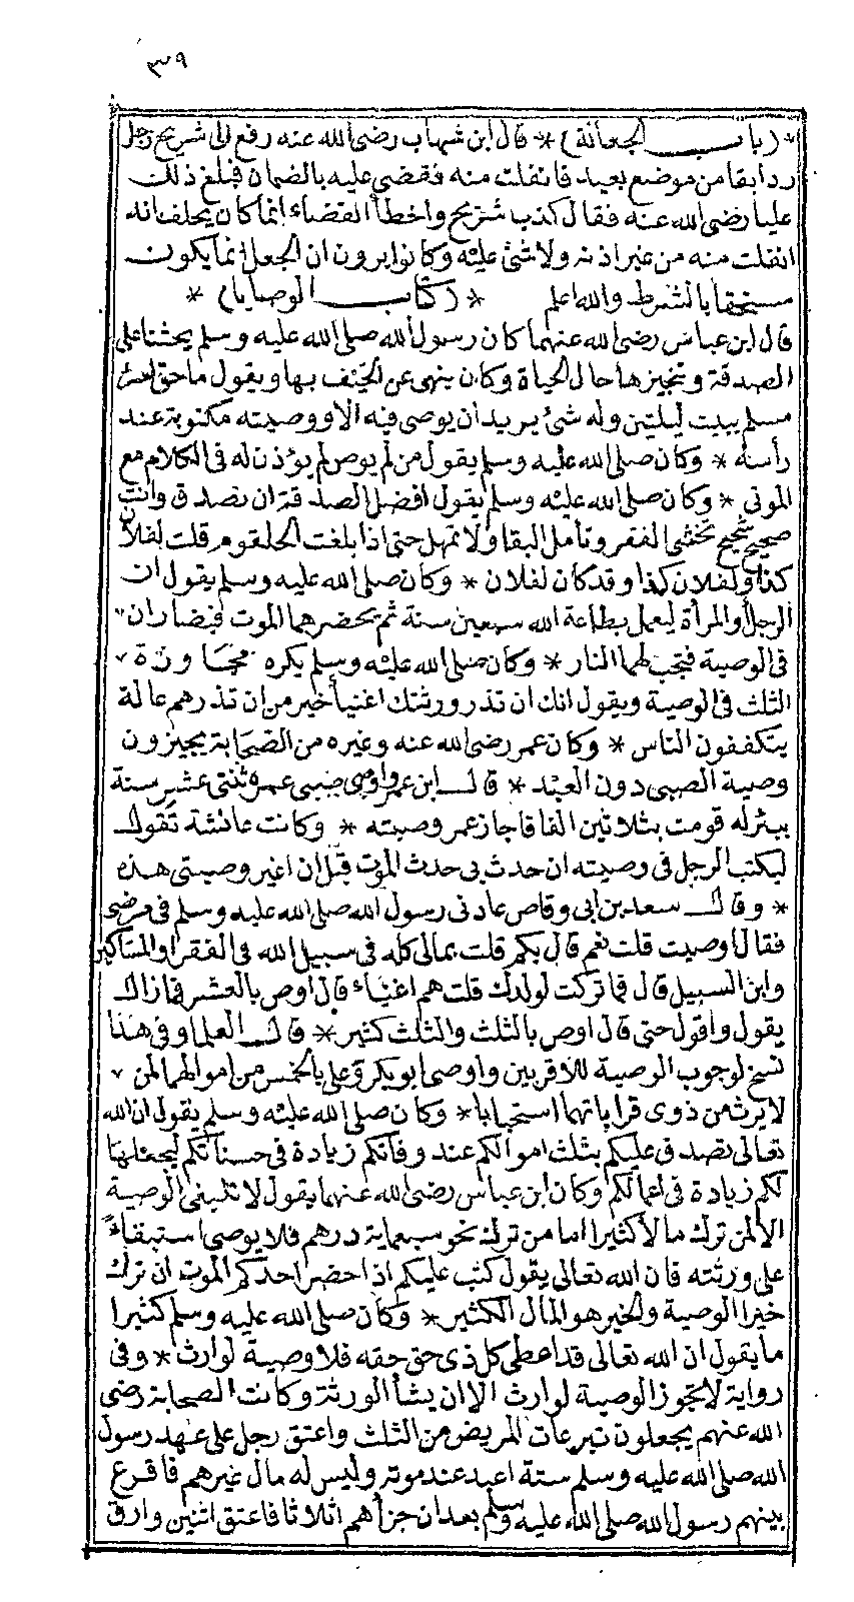 ٣٩
*(باب الجعالة)* قال ابن شهاب رضى الله عنه رفع الى شريح رجل
رد ابقا من موضع بعيد فانفلت منه فقضى عليه بالضمان فبلغ ذلك
عليا رضى الله عنه فقال كذب شريح واخطأ القضاء انما كان يحلف انه
انفلت منه من غير اذنه ولا شئ عليه وكانوا يرون ان الجعل انما يكون
مستحقا بالشرط والله اعلم * (كتاب الوصايا) *
قال ابن عباس رضى الله عنهما كان رسول الله صلى الله عليه وسلم يحثنا على
الصدقة وتنجيزها حال الحياة وكان ينهى عن الحيف بها ويقول ما حق امرئ
مسلم يبيت ليلتين وله شئ يريد ان يوصى فيه الا ووصيته مكتوبة عند
رأسه * وكان صلى الله عليه وسلم يقول من لم يوص لم يؤذن له فى الكلام مع
الموتى * وكان صلى الله عليه وسلم يقول افضل الصدقة ان تصدق وانت
صحيح شحيح تخشى الفقر وتأمل البقا ولا تمهل حتى اذا بلغت الحلقوم قلت لفلان
كذا ولفلان كذا وقد كان لفلان * وكان صلى الله عليه وسلم يقول ان
الرجل والمرأة ليعمل بطاعة الله سبعين سنة ثم يحضرهما الموت فيضاران
فى الوصية فتجب لهما النار * وكان صلى الله عليه وسلم يكره مجاوزة
الثلث فى الوصية ويقول انك ان تذر ورثتك اغنيأ خير من ان تذرهم عالة
يتكففون الناس * وكان عمر رضى الله عنه وغيره من الصحابة يجيزون
وصية الصبى دون العبد * قال ابن عمر واوصى صبى عمره ثنتى عشر سنة
ببئر له قومت بثلاثين الفا فاجاز عمر وصيته * وكانت عائشة تقول
ليكتب الرجل فى وصيته ان حدث بى حدث الموت قبل ان اغير وصيتى هذه
* وقال سعد بن ابى وقاص عادنى رسول الله صلى الله عليه وسلم فى مرضى
فقال اوصيت قلت نعم قال بكم قلت بمالى كله فى سبيل الله فى الفقرا والمساكين
وابن السبيل قال فما تركت لولدك قلت هم اغنياء قال اوص بالعشر فما زال
يقول واقول حتى قال اوص بالثلث والثلث كثير * قال العلما وفى هذا
نسخ لوجوب الوصية للاقربين واوصى ابو بكر وعلى بالخمس من اموالهما لمن
لا يرث من ذوى قراباتهما استحبابا * وكان صلى الله عليه وسلم يقول ان الله
تعالى تصدق عليكم بثلث اموالكم عند وفاتكم زيادة فى حسناتكم ليجعلها
لكم زيادة فى اعمالكم وكان ابن عباس رضى الله عنهما يقول لا تنبغى الوصية
الا لمن ترك مالا كثيرا اما من ترك نحو سبعماية درهم فلا يوصى استبقاءً
على ورثته فان الله تعالى يقول كتب عليكم اذا حضر احدكم الموت ان ترك
خيرا الوصية والخير هو المال الكثير * وكان صلى الله عليه وسلم كثيرا
ما يقول ان الله تعالى قد اعطى كل ذى حق حقه فلا وصية لوارث * وفى
رواية لا تجوز الوصية لوارث الا ان يشأ الورثة وكانت الصحابة رضى
الله عنهم يجعلون تبرعات المريض من الثلث واعتق رجل على عهد رسول
الله صلى الله عليه وسلم ستة اعبد عند موته وليس له مال غيرهم فاقرع
بينهم رسول الله صلى الله عليه وسلم بعد ان جزأهم اثلاثا فاعتق اثنين وارق